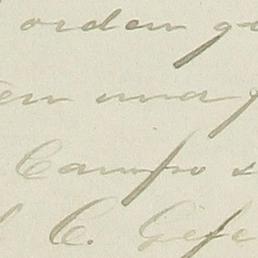 orden
en una
Campo
C. Gefe